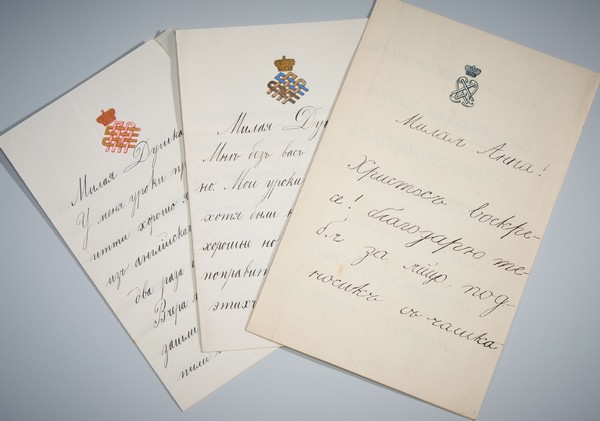 Милая Душка
У меня уроки пр
итти хорошо я
изъ английска
два раза
Вчера
заним
пили
Милая Душ
Мнѣ безъ васъ
но. Мои уроки
хотя были
хорошы но
поправит
этихъ
Милая Анна!
Христосъ воскре-
а! благодарю те-
бя за яйцо, под-
носикъ съ чашка